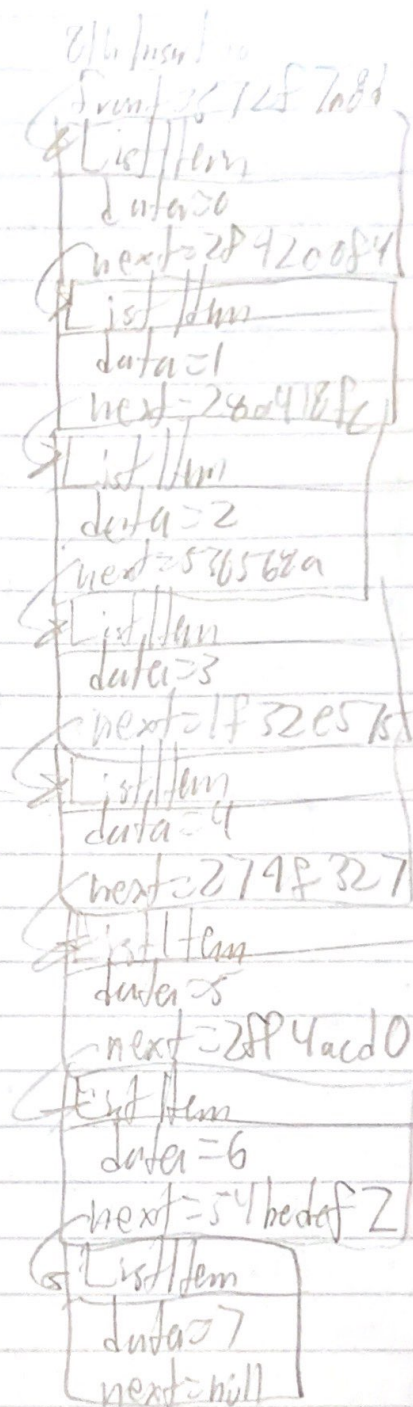 ListItem
data=0
next=284200f4
ListItem
data=1
ListItem
data=2
next=536568a
ListItem
data=3
next=1f32e575
ListItem
data=4
next=274f327
ListItem
data=5
next=2ff4acd0
ListItem
data=6
next=54bedef2
ListItem
data=7
next=null